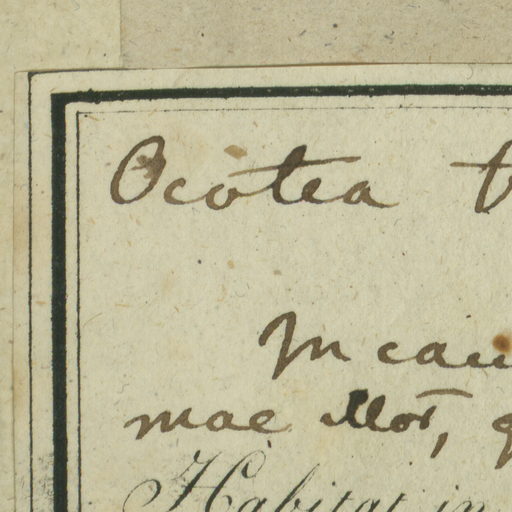 Ocotea
In cau
mae
Habitat in